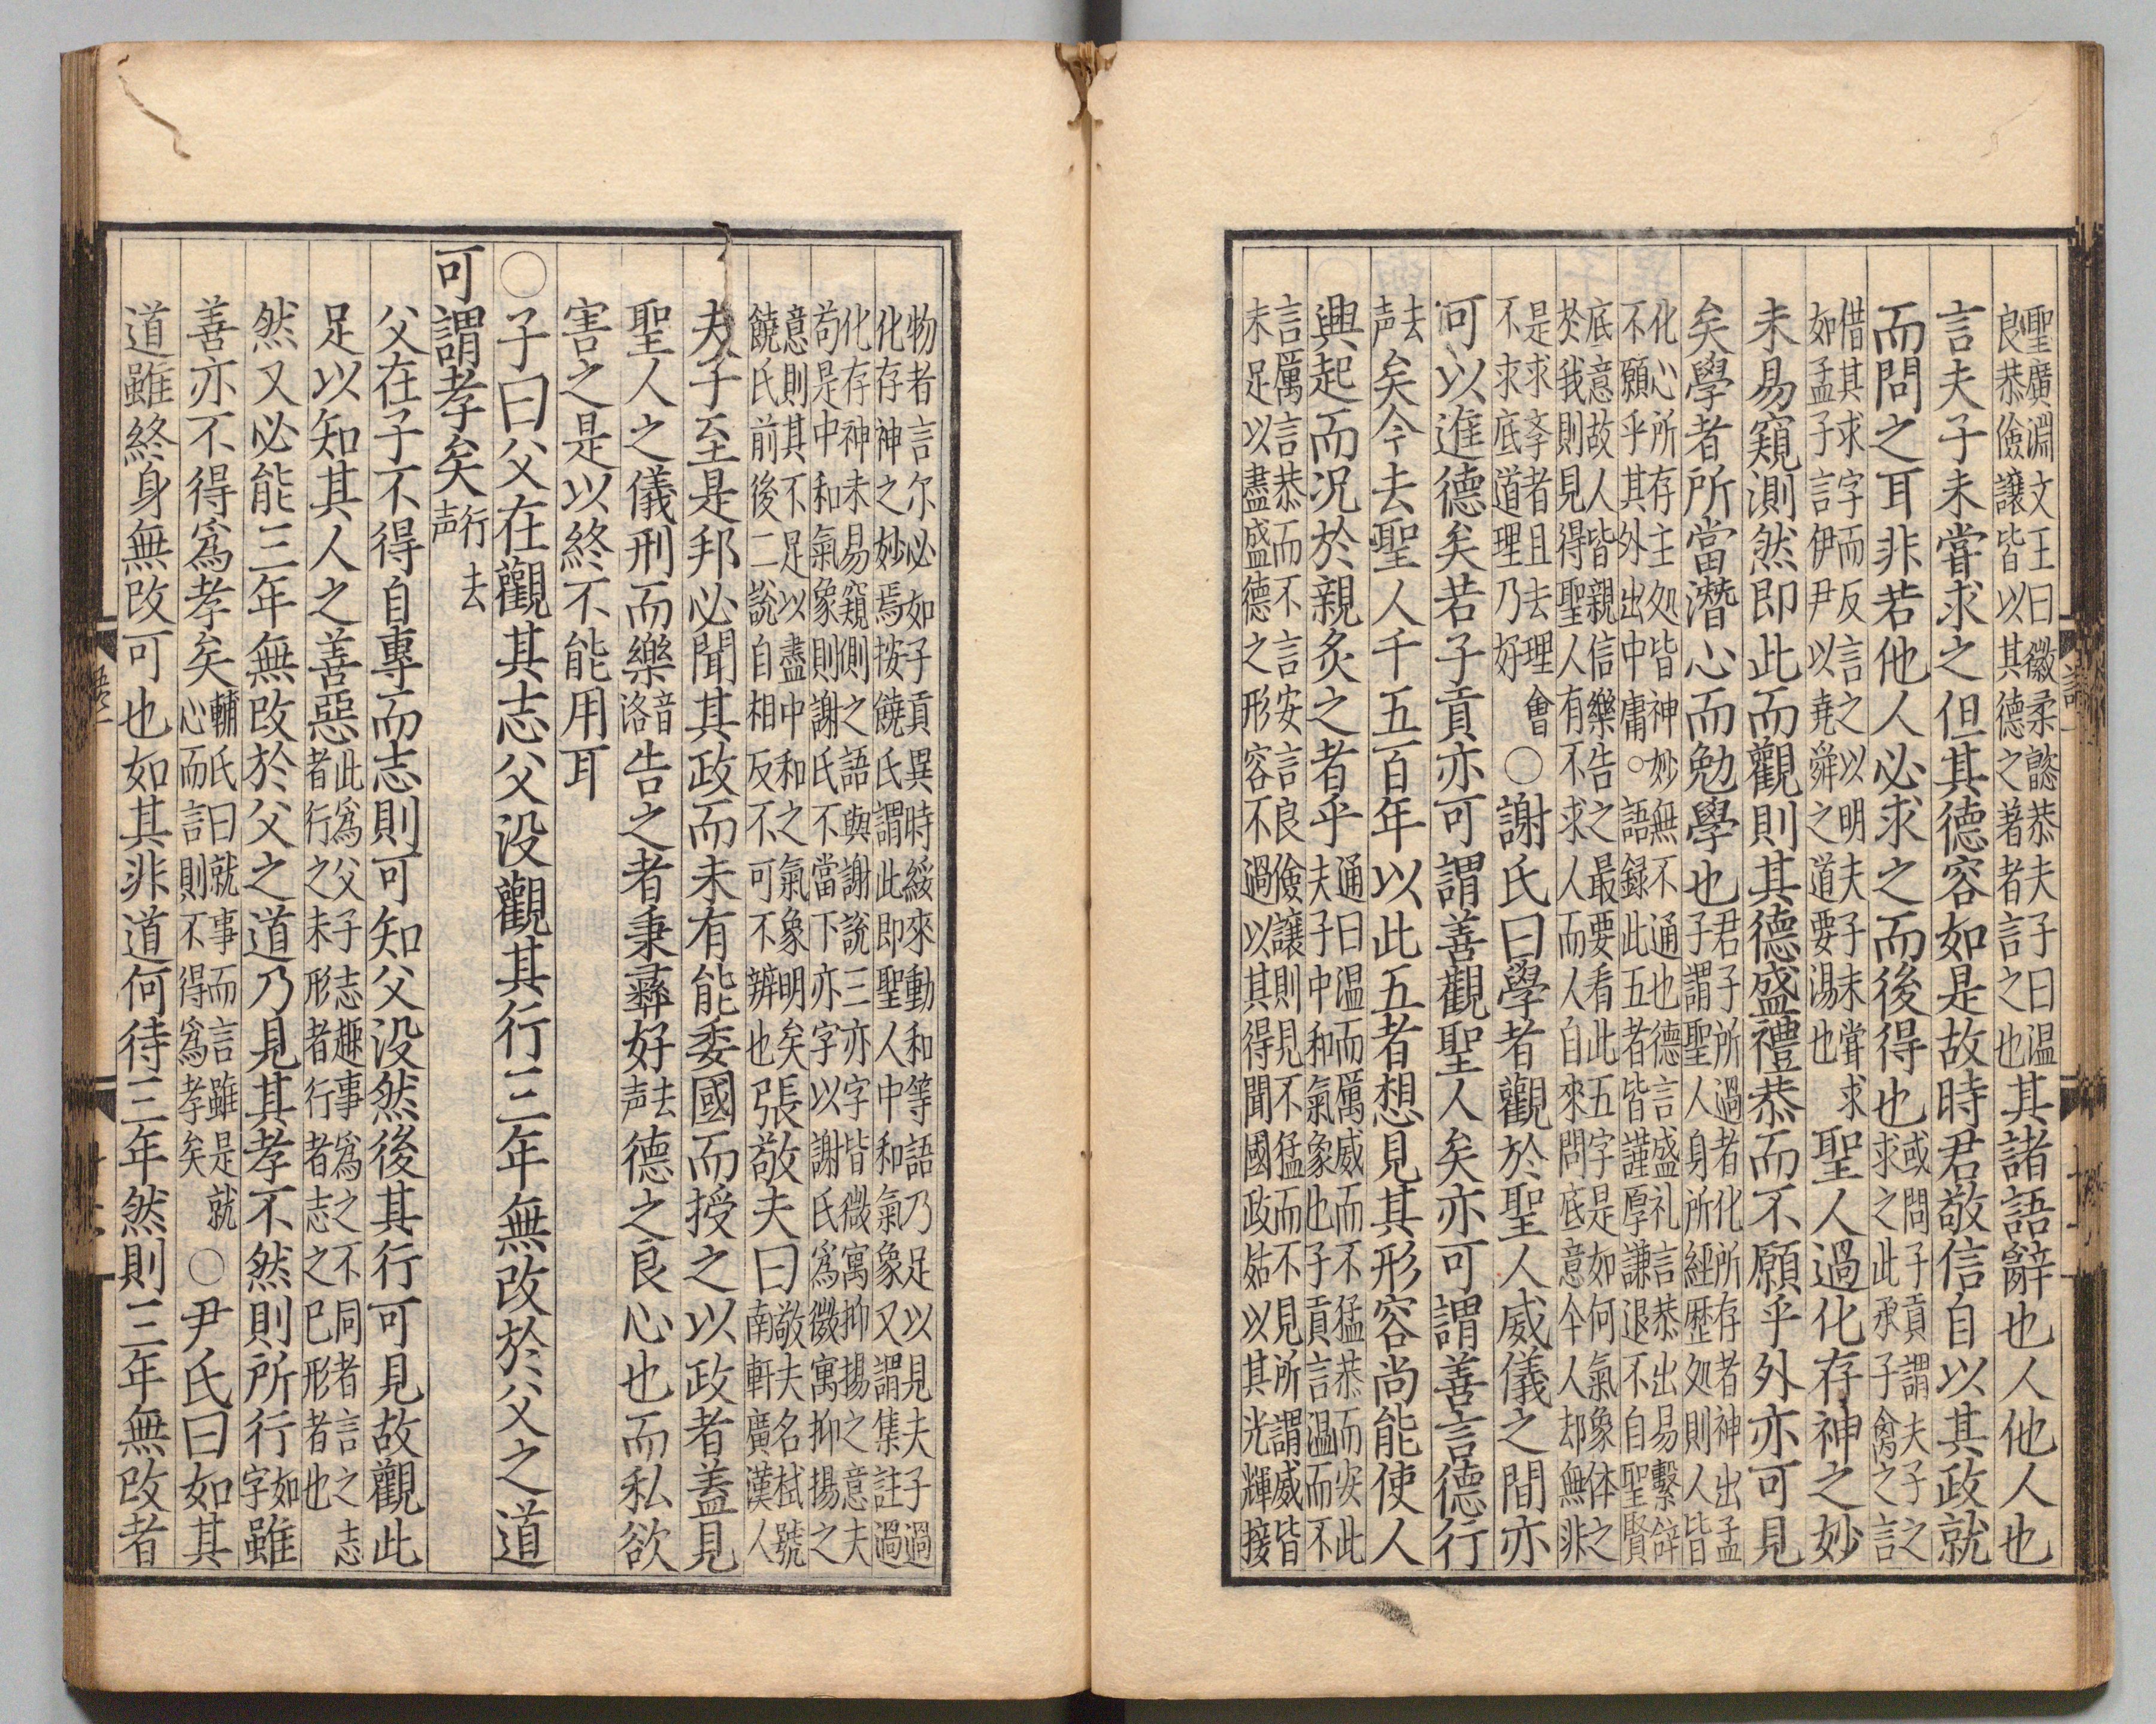 聖廣淵文王曰徽柔懿恭夫子曰温
良恭儉讓皆以其德之著者言之也
其諸語辭也人他人也
言夫子未嘗求之但其德容如是故時君敬信自以其政就
而問之耳非若他人必求之而後得也
或問子貢謂夫子之
求之此承子禽之言
借其求字而反言之以明夫子未嘗求
如孟子言伊尹以堯舜之道要湯也
聖人過化存神之妙
未易窺測然即此而觀則其德盛禮恭而不願乎外亦可見
矣學者所當潛心而勉學也
君子所過者化所存者神出孟
子謂聖人身所經歷処則人皆
化心所存主処皆神妙無不通也德言盛礼言恭出易繫辞
不願乎其外出中庸○語録此五者皆謹厚謙退不自聖賢
底意故人皆親信樂告之最要看此五字是如何氣象体之
於我則見得聖人有不求人而人自來問底意今人却無非
是求孝者且去理會
不求底道理乃好
○謝氏曰學者觀於聖人威儀之間亦
可以進德矣若子貢亦可謂善觀聖人矣亦可謂善言德行
去
声
矣今去聖人千五百年以此五者想見其形容尚能使人
興起而况於親炙之者乎
通曰温而厲威而不猛恭而安此
夫子中和氣象也子貢言温而不
言厲言恭而不言安言良儉讓則見不猛而不見所謂威皆
未足以盡盛德之形容不過以其得聞國政姑以其光輝接
物者言尔必如子貢異時綏來動和等語乃足以見夫子過
化存神之妙焉按饒氏謂此即聖人中和氣象又謂集註過
化存神未易窺則之語與謝說三亦字皆微寓抑揚之意夫
苟是中和氣象則謝氏不當下亦字以謝氏爲微寓抑揚之
意則其不足以盡中和之氣象明矣
饒氏前後二說自相反不可不辨也
張敬夫曰
敬夫名栻號
南軒廣漢人
夫子至是邦必聞其政而未有能委國而授之以政者蓋見
聖人之儀刑而樂
音
洛
告之者秉彝好
去
声
德之良心也而私欲
害之是以終不能用耳
○子曰父在觀其志父没觀其行三年無改於父之道
可謂孝矣
行去
声
父在子不得自專而志則可知父没然後其行可見故觀此
足以知其人之善惡
此爲父子志趣事爲之不同者言之志
者行之未形者行者志之已形者也
然又必能三年無改於父之道乃見其孝不然則所行
如
字
雖
善亦不得爲孝矣
輔氏曰就事而言雖是就
心而言則不得爲孝矣
○尹氏曰如其
道雖終身無改可也如其非道何待三年然則三年無改者